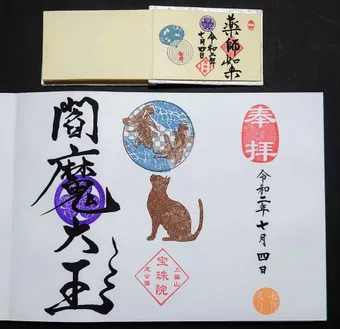 薬師如来
令和二年
七月四日
奉拝
令和二年七月四日
三縁山
宝珠院
芝公園
閻魔大王